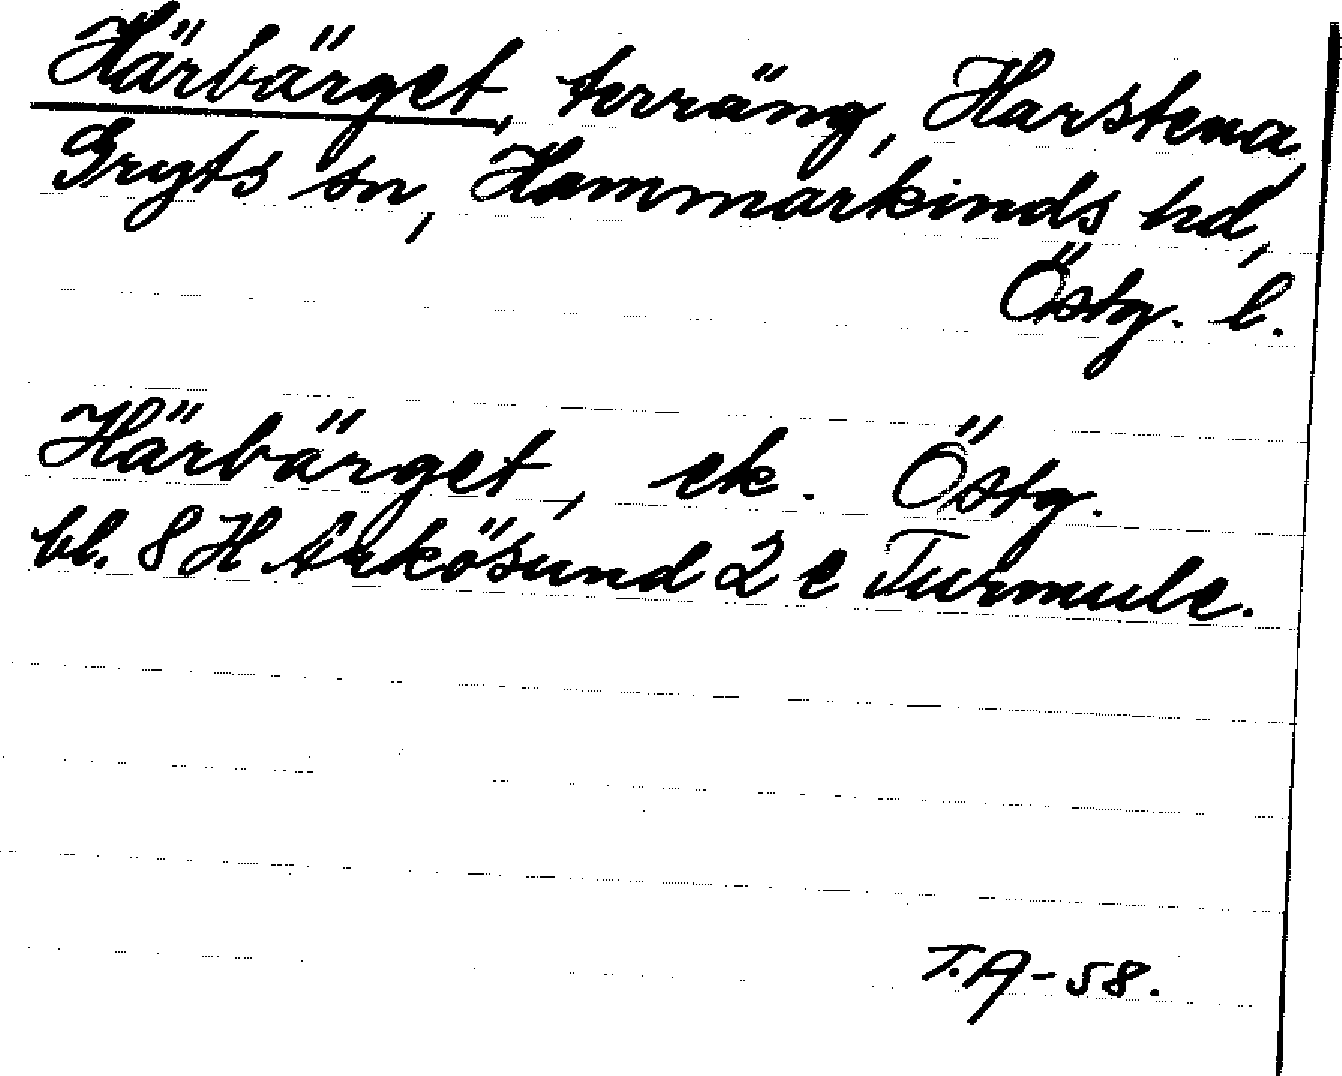 Härbärget, terräng, Harstena,
Gryts sn, Hammarkinds hd,
Östg. l.
Härbärget, ek. Östg.
bl. 8 H Arkösund 2 e Turmule.
T.A-58.